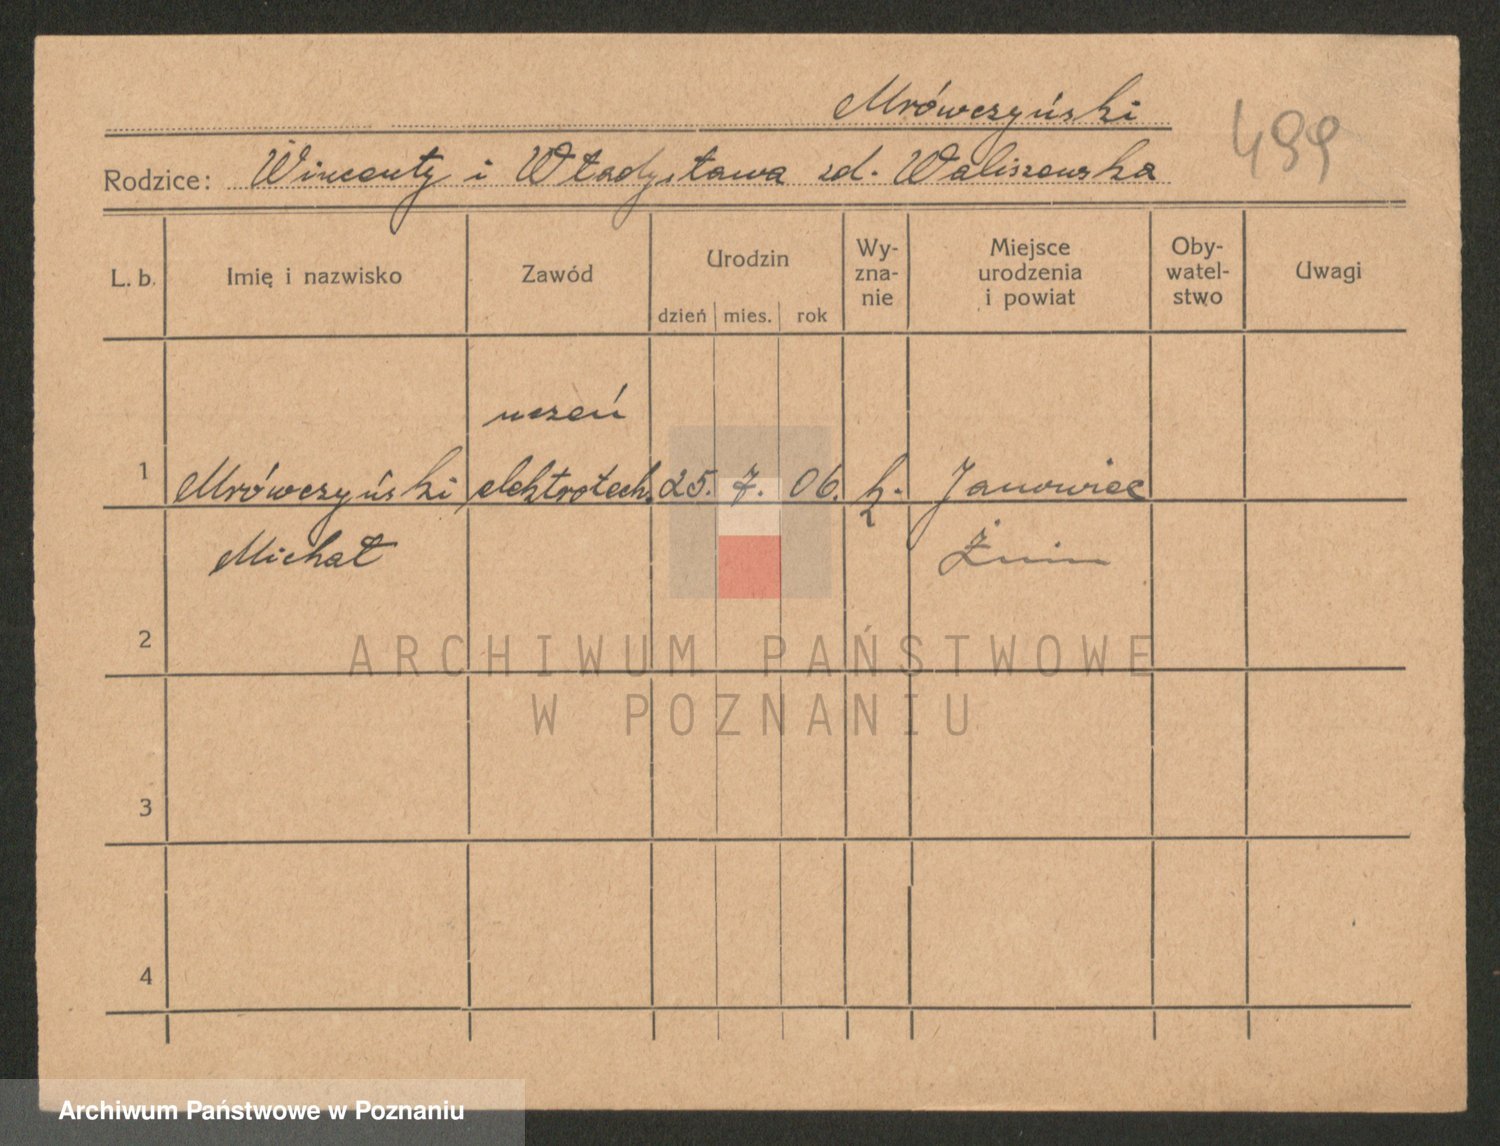 Mrówczyński
499
Rodzice: Wincenty i Władysława zd. Waliszewska
L. b. Imię i nazwisko Zawód Urodzin dzień mies. rok Wy-zna-nie Miejsce urodzenia i powiat Oby-watel-stwo Uwagi
uczeń
1 Mrówczyński elektrotech. 25. 7. 06. k. Janowiec
Michał Żnin
2
ARCHIWUM PAŃSTWOWE
W POZNANIU
3
4
Archiwum Państwowe w Poznaniu